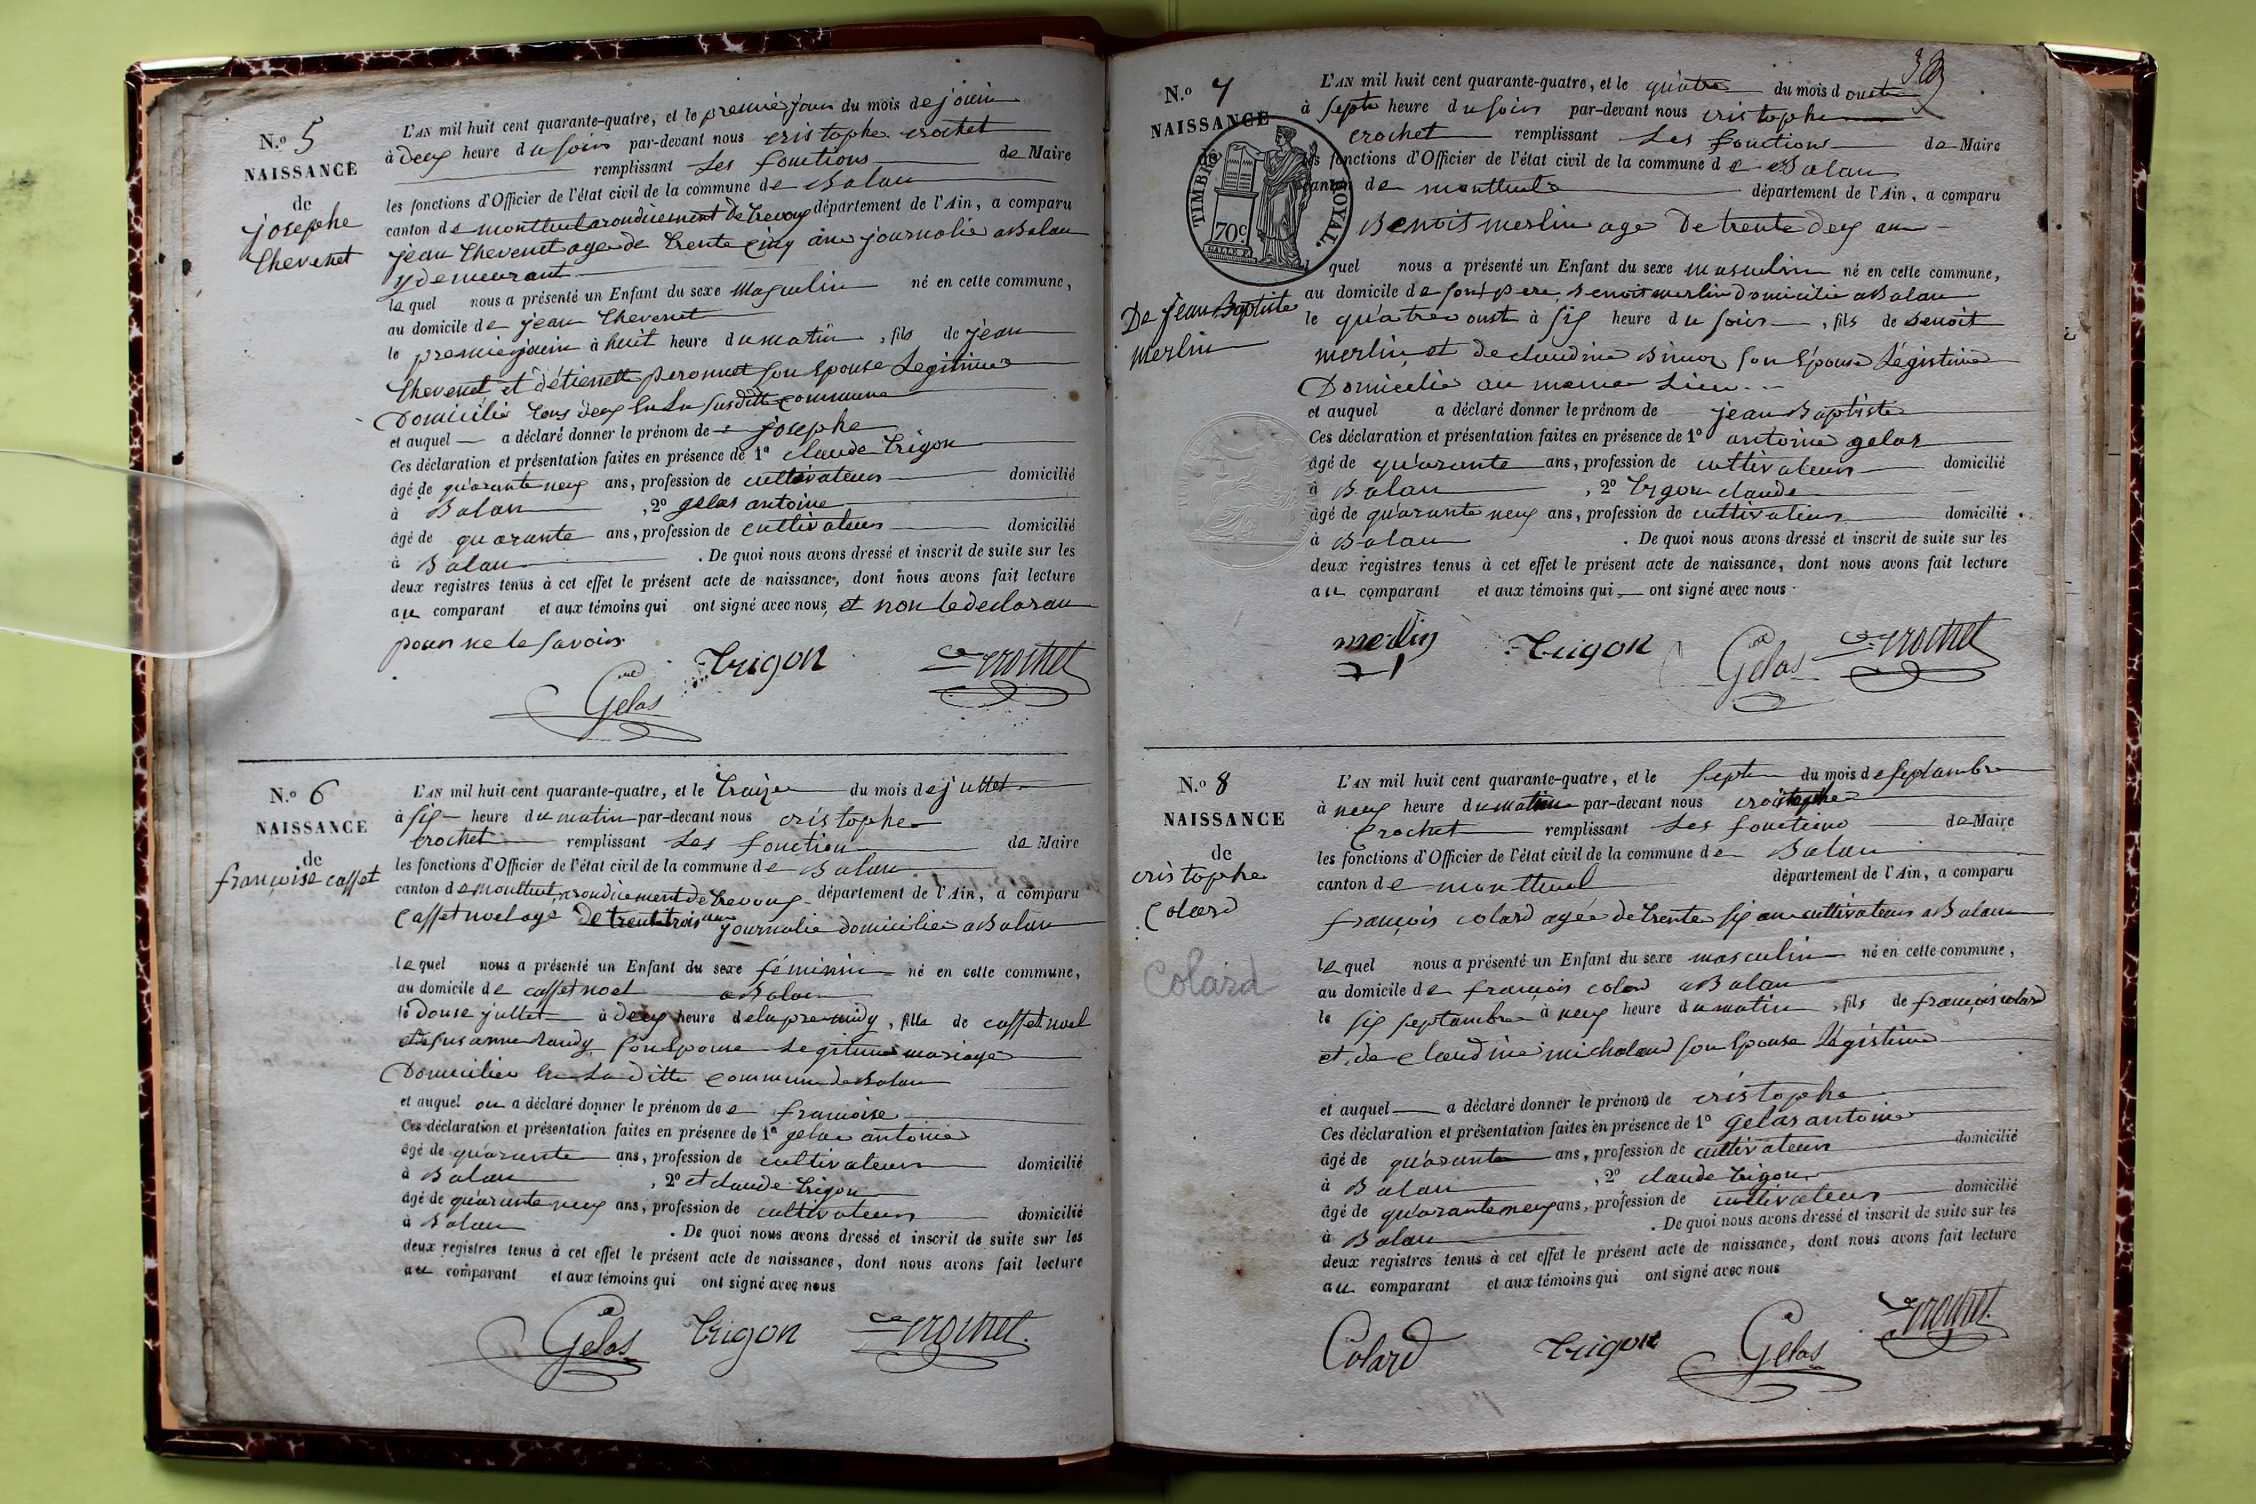 N.o 5
NAISSANCE
de
josephe
Chevenet
L'AN mil huit cent quarante-quatre, et le premie jour du mois de jouin
à deux heure du soir par-devant nous cristophe crochet
remplissant Les fonctions de Maire
les fonctions d'Officier de l'état civil de la commune de Balan
canton de montluel arondicement de trevoux département de l'Ain, a comparu
jean Chevenet age de trente cinq ans journalie a Balan
y demeurant
le quel nous a présenté un Enfant du sexe masquelin né en cette commune,
au domicile de jean Chevenet
le premie jouin à huit heure du matin, fils de jean
Chevenet et d'étienette peronnet son Epouse Legitime
Domicilié tous deux En La susditte commune
et auquel a déclaré donner le prénom de josephe
Ces déclaration et présentation faites en présence de 1o claude trigon
âgé de quarante neuf ans, profession de cultivateur domicilié
à Balan, 2o gelas antoine
âgé de quarante ans, profession de cultivateur domicilié
à Balan. De quoi nous avons dressé et inscrit de suite sur les
deux registres tenus à cet effet le présent acte de naissance, dont nous avons fait lecture
au comparant et aux témoins qui ont signé avec nous, et non le declaran
pour ne le savoir
Trigon
Crochet
Gelas
N.o 6
NAISSANCE
de
françoise casset
L'AN mil huit cent quarante-quatre, et le traize du mois de jullet
à six heure du matin par-devant nous cristophe
crochet remplissant Les fonction de Maire
les fonctions d'Officier de l'état civil de la commune de Balan
canton de montluel, arondicement de trevoux département de l'Ain, a comparu
Casset noel age de trente trois ans journalie domicilie a Balan
le quel nous a présenté un Enfant du sexe féminin né en cette commune,
au domicile de casset noel a Balan
le douse jullet à deux heure de la premidy, fille de casset noel
et de susanne son Epouse Legitime mariage
Domicilie En La ditte commune de Balan
et auquel on a déclaré donner le prénom de francoise
Ces déclaration et présentation faites en présence de 1o gelas antoine
âgé de quarante ans, profession de cultivateur domicilié
à Balan, 2o et claude trigon
âgé de quarante neuf ans, profession de cultivateur domicilié
à Balan. De quoi nous avons dressé et inscrit de suite sur les
deux registres tenus à cet effet le présent acte de naissance, dont nous avons fait lecture
au comparant et aux témoins qui ont signé avec nous
Gelas Trigon Crochet
N.o 7
NAISSANCE
de
TIMBRE ROYAL
70c
De jean Baptiste
merlin
L'AN mil huit cent quarante-quatre, et le quatre du mois d'oust
à septe heure du soir par-devant nous cristophe
crochet remplissant Les fonction de Maire
les fonctions d'Officier de l'état civil de la commune de Balan
canton de montluel département de l'Ain, a comparu
Benoit merlin age De trente deux an
le quel nous a présenté un Enfant du sexe masculin né en cette commune,
au domicile de son pere Benoit merlin Domicilie a Balan
le quatre oust à six heure du soir, fils de Benoit
merlin et de claudine son Épouse Légistime
Domicilié au meme Lieu
et auquel a déclaré donner le prénom de jean Baptiste
Ces déclaration et présentation faites en présence de 1o antoine gelas
âgé de quarante ans, profession de cultivateur domicilié
à Balan, 2o trigon claude
âgé de quarante neuf ans, profession de cultivateur domicilié
à Balan. De quoi nous avons dressé et inscrit de suite sur les
deux registres tenus à cet effet le présent acte de naissance, dont nous avons fait lecture
au comparant et aux témoins qui ont signé avec nous
merlin Trigon Gelas Crochet
N.o 8
NAISSANCE
de
cristophe
Colard
Colard
L'AN mil huit cent quarante-quatre, et le septe du mois de septembre
à neuf heure du matin par-devant nous cristophe
Crochet remplissant Les fonctions de Maire
les fonctions d'Officier de l'état civil de la commune de Balan
canton de montluel département de l'Ain, a comparu
françois colard agée de trente six an cultivateur a Balan
le quel nous a présenté un Enfant du sexe masculin né en cette commune,
au domicile de françois colard a Balan
le six septambre à neuf heure du matin, fils de françois colard
et de claudine micholand son Epouse Légistime
et auquel a déclaré donner le prénom de cristophe
Ces déclaration et présentation faites en présence de 1o gelas antoine
âgé de quarante ans, profession de cultivateur domicilié
à Balan, 2o claude trigon
âgé de quarante neuf ans, profession de cultivateur domicilié
à Balan. De quoi nous avons dressé et inscrit de suite sur les
deux registres tenus à cet effet le présent acte de naissance, dont nous avons fait lecture
au comparant et aux témoins qui ont signé avec nous
Colard Trigon Gelas Crochet